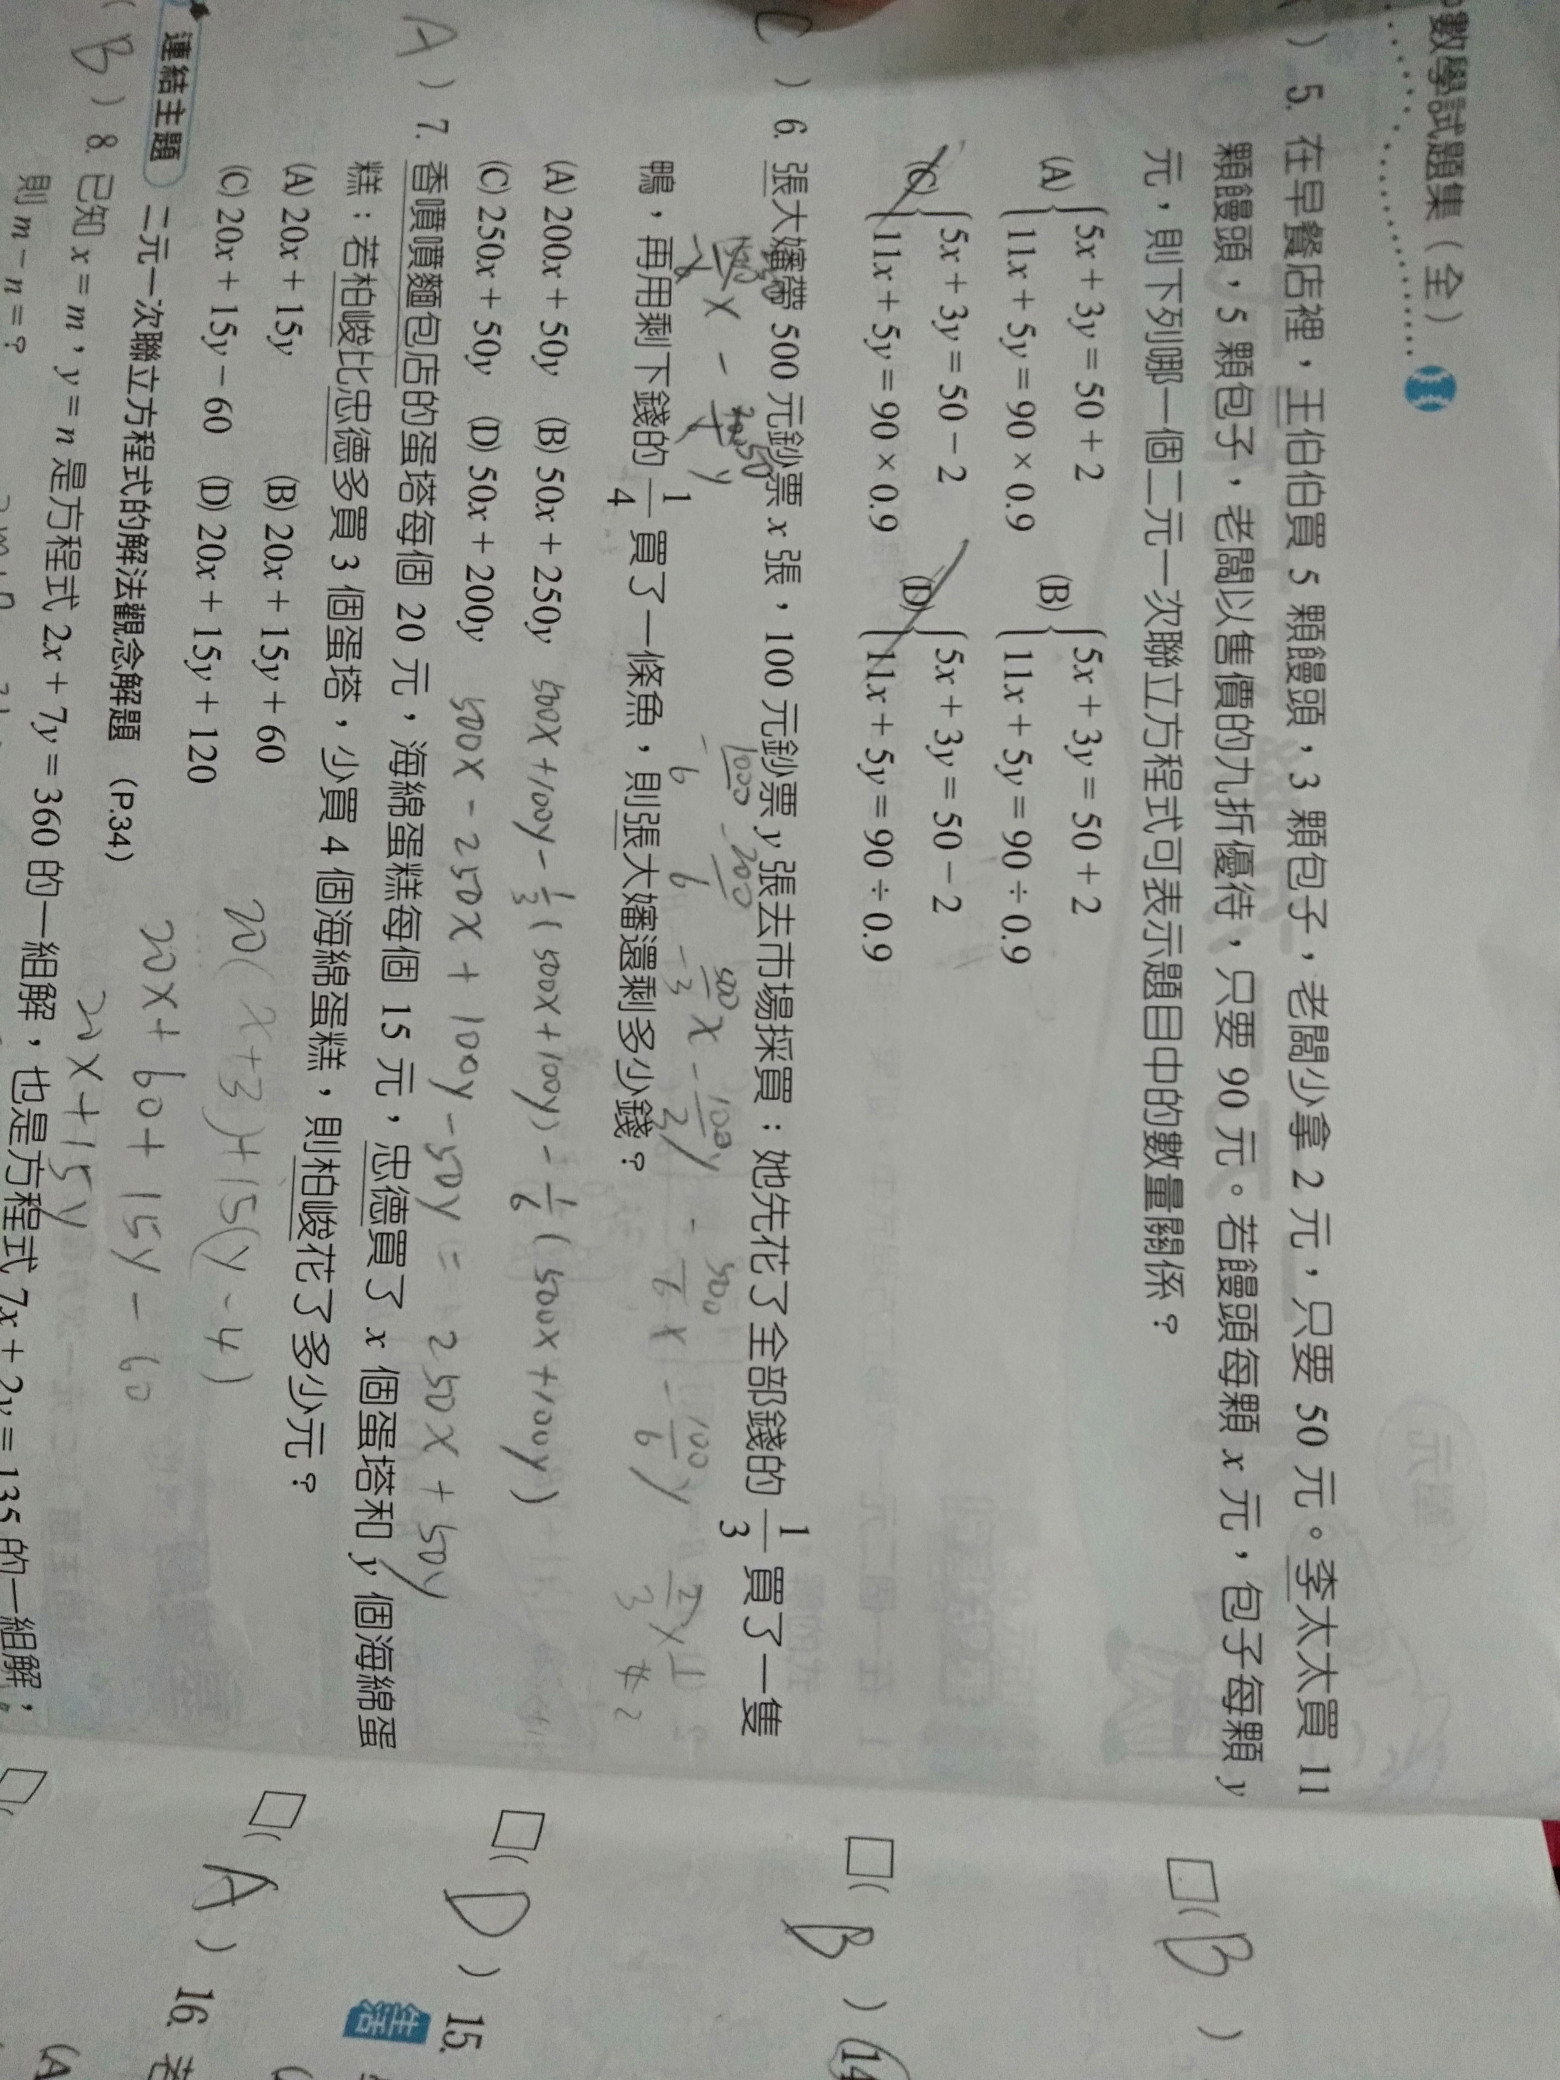 數學試題集（全）
）5. 在早餐店裡，王伯伯買 5 顆饅頭，3 顆包子，老闆少拿 2 元，只要 50 元。李太太買 11
顆饅頭，5 顆包子，老闆以售價的九折優待，只要 90 元。若饅頭每顆 x 元，包子每顆 y
元，則下列哪一個二元一次聯立方程式可表示題目中的數量關係？
(A) { 5x + 3y = 50 + 2 (B) { 5x + 3y = 50 + 2
11x + 5y = 90 × 0.9 11x + 5y = 90 ÷ 0.9
(C) { 5x + 3y = 50 − 2 (D) { 5x + 3y = 50 − 2
11x + 5y = 90 × 0.9 11x + 5y = 90 ÷ 0.9
C）6. 張大嬸帶 500 元鈔票 x 張，100 元鈔票 y 張去市場採買：她先花了全部錢的 1/3 買了一隻
鴨，再用剩下錢的 1/4 買了一條魚，則張大嬸還剩多少錢？
(A) 200x + 50y (B) 50x + 250y
500x+100y-1/3(500x+100y)-1/6(500x+100y)
(C) 250x + 50y (D) 50x + 200y
500x-250x+100y-50y=250x+50y
A）7. 香噴噴麵包店的蛋塔每個 20 元，海綿蛋糕每個 15 元，忠德買了 x 個蛋塔和 y 個海綿蛋
糕；若柏峻比忠德多買 3 個蛋塔，少買 4 個海綿蛋糕，則柏峻花了多少元？
(A) 20x + 15y (B) 20x + 15y + 60
(C) 20x + 15y − 60 (D) 20x + 15y + 120
20(x+3)+15(y-4)
20x+60+15y-60
20x+15y
連結主題 二元一次聯立方程式的解法觀念解題（P.34）
(B）8. 已知 x = m，y = n 是方程式 2x + 7y = 360 的一組解，也是方程式 7x + 2y = 135 的一組解，
則 m − n = ？
□( B ）
□( B ）14
□( D ）15.
生活
□( A ）16. 若
(A